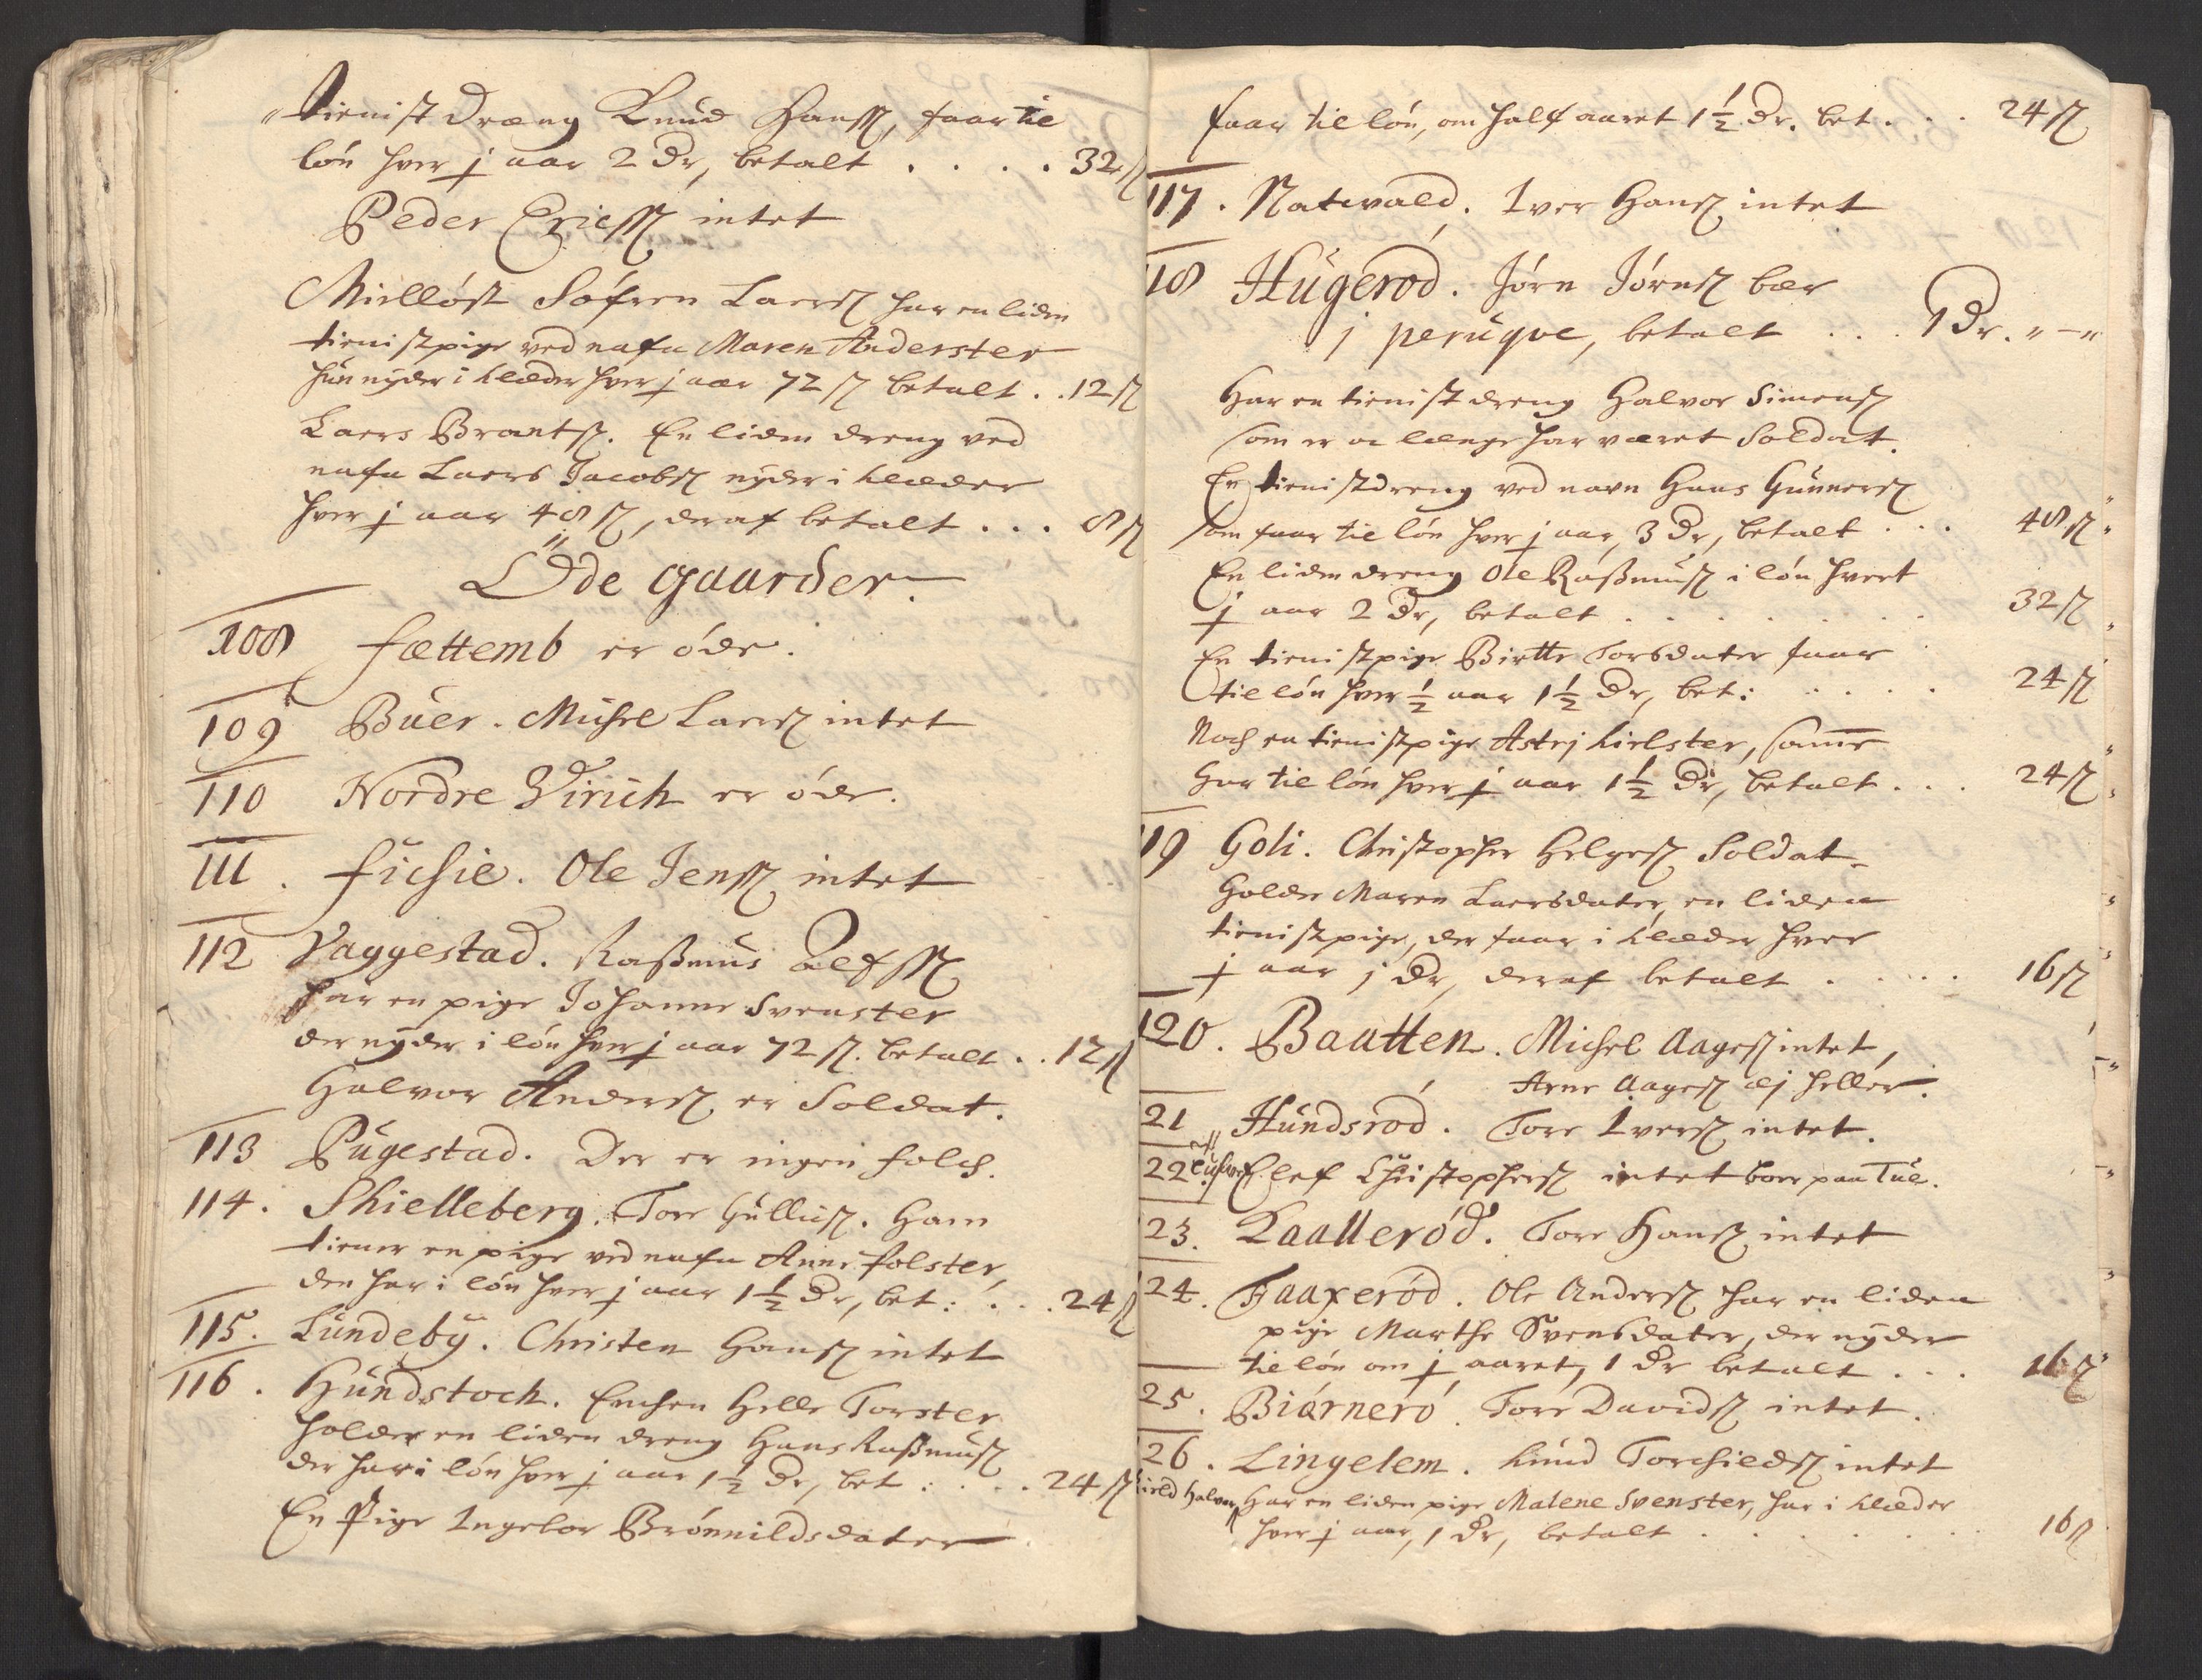 tienist dreng Knud Hanss, faar til
lón hver j aar 2 Dr, betalt . . . . 32 ß
Peder Ericss intet
Miellóst Sófren Laers har en liden
tienistpige ved nafn Maren Anderster
hun nyder i klæder hver j aar 72 ß betalt . . 12 ß
Laers Brants. En liden dreng ved
nafn Laers Jacobs nyder i klæder
hver j aar 48 ß, deraf betalt . . . 8 ß
Öde gaarder.
108 fættemb er óde.
109 Büer. Michel Laers intet
110 Nordre Virich er óde.
111. fichie. Ole Jenss intet
112 Vaggestad. Rasmus Alfss
har en pige Johanne Svenster
der nyder i lón hver j aar 72 ß. betalt . . 12 ß
Halvor Anders er Soldat.
113 Pugestad. Der er ingen folch.
114. Skielleberg. Tore Gullus. Ham
tiener en pige ved nafn Anne folster,
den har i lón hver j aar 1½ Dr, bet: . . . 24 ß
115. Lundebÿ. Christen Hans intet
116. Hundstoch. Enchen Helle Torster
holder en liden dreng Hans Rasmus
der har i lón hver j aar 1½ Dr, bet : . . . 24 ß
En Pige Ingebor Brónnildsdater
faar til lón, om half aaret 1½ Dr. bet. . . 24 ß
117. Natvald. Iver Hans intet
18 Hugeród. Jórn Jórns bær
j peruqve, betalt . . . 1 Dr. " - "
Har en tienist dreng Halvor Simens
som er oc lenge har været Soldat.
En tienistdreng ved navn Hans Gunners
som faar til lón hver j aar, 3 Dr, betalt . . . 48 ß
En liden dreng Ole Rasmus i lón hvert
j aar 2 Dr, betalt . . . . . . . 32 ß
En tienistpige Birtte Torsdater faar
til lón hver ½ aar 1½ Dr, bet: . . . . . 24 ß
Noch en tienistpige Astrj Kielster, samme
har til lón hver j aar 1½ Dr, betalt . . . 24 ß
19 Goli. Christopher Helges Soldat
Holder Maren Laersdater en liden
tienistpige, der faar i klæder hver
j aar j Dr, deraf betalt . . . . 16 ß
120. Baatten. Michel Aages intet,
Arne Aages ej heller.
21 Hundsród. Tore Ivers intet.
22 Elef Christophers intet boer paa Tue.
23. Kaalleród. Tore Hans intet
24. Faaxeród. Ole Anders har en liden
pige Marthe Svensdater, der nyder
til lón om j aaret, 1 Dr betalt . . . 16 ß
25. Biórneró. Tore Davids intet.
26. Lingelem. Knud Torchields intet
Kield Halvors Har en liden pige Malene Svenster, har i klæder
hver j aar, 1 Dr, betalt . . . . . . 16 ß